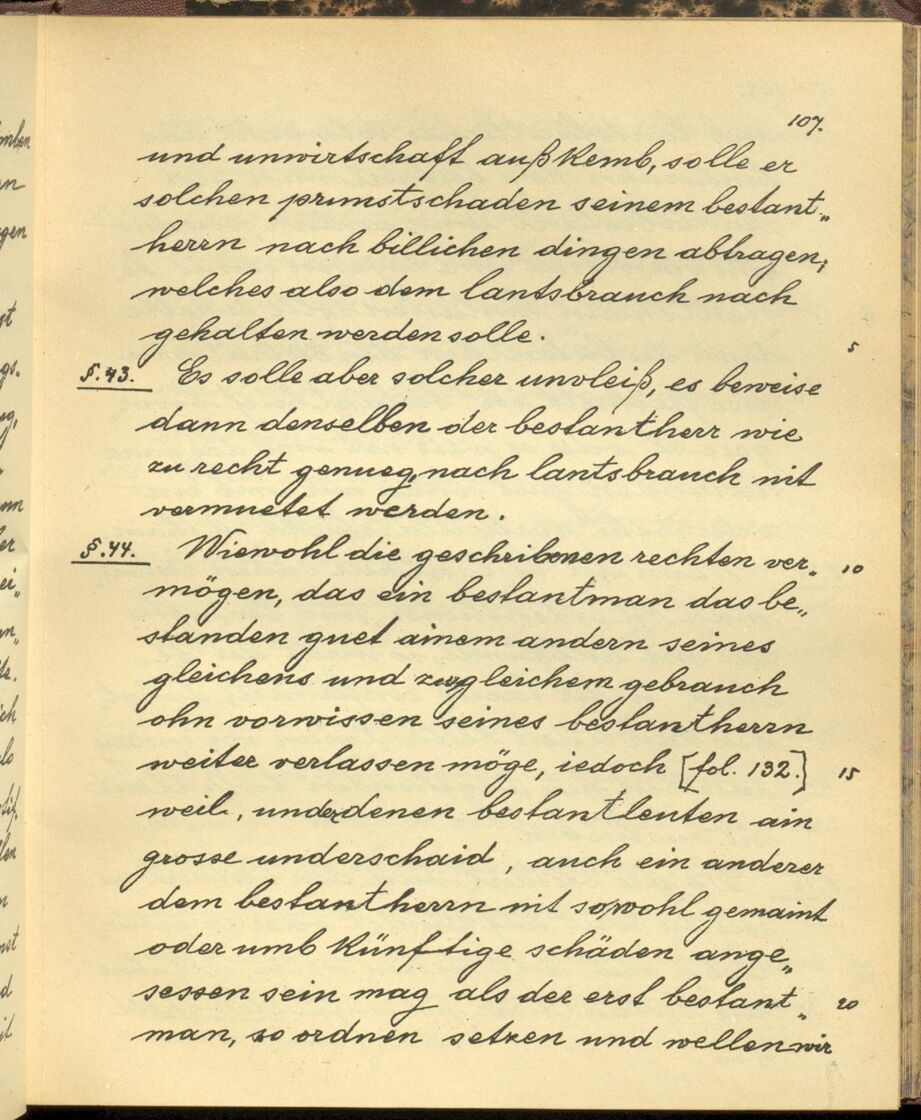 107.
und unwirtschaft außkemb, solle er
solchen prunstschaden seinem bestant„
herrn nach billichen dingen abtragen;
welches also dem lantsbrauch nach
gehalten werden solle.
5
§.43. Es solle aber solcher unvleiß, es beweise
dann denselben der bestantherr wie
zu recht genueg, nach lantsbrauch nit
vermuetet werden.
§.44. Wiewohl die geschribenen rechten ver„ 10
mögen, das ein bestantman das be„
standen guet ainem andern seines
gleichens und zu gleichem gebrauch
ohn vorwissen seines bestantherrn
weiter verlassen möge, iedoch [fol. 132.] 15
weil, under denen bestantleuten ain
grosse underschaid, auch ein anderer
dem bestantherrn nit so wohl gemaint
oder umb künftige schäden ange„
sessen sein mag als der erst bestant„ 20
man, so ordnen setzen und wellen wir